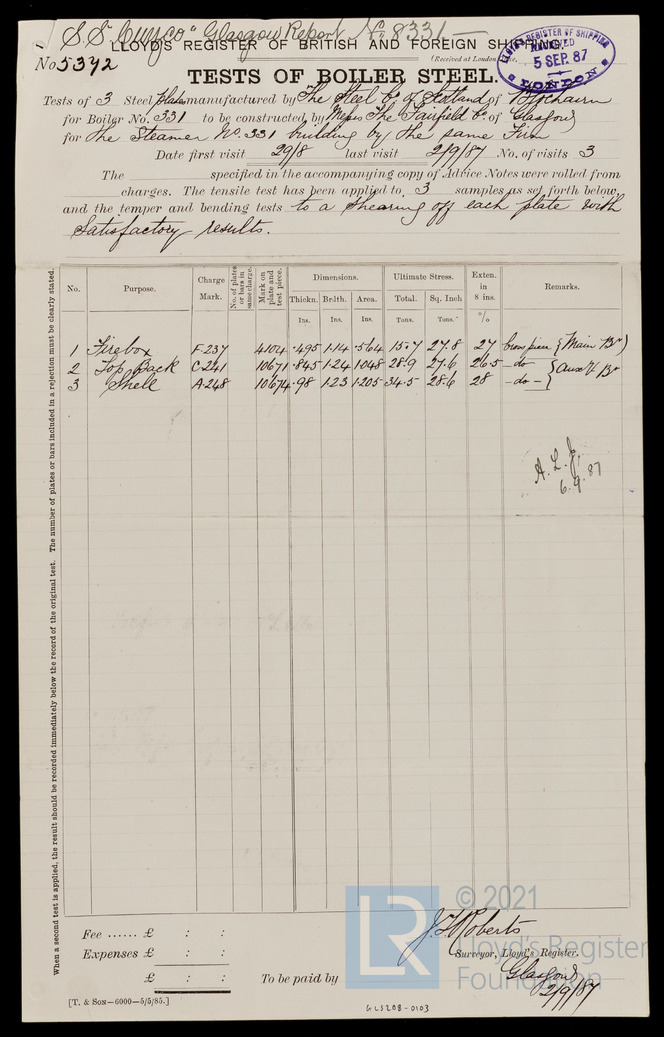 S.S. "Cuzco" Glasgow Report No. 8331
LLOYD'S REGISTER OF BRITISH AND FOREIGN SHIPPING.
No 5392
(Received at London Office,
LLOYD'S REGISTER OF SHIPPING
RECEIVED
5 SEP. 87
LONDON
TESTS OF BOILER STEEL.
Tests of 3 Steel plates manufactured by The Steel Co. of Scotland of Blochairn
for Boiler No. 331 to be constructed by Messrs The Fairfield Co. of Glasgow
for The Steamer No. 331 building by the same Firm
Date first visit 29/8 last visit 2/9/87 No. of visits 3
The specified in the accompanying copy of Advice Notes were rolled from
charges. The tensile test has been applied to 3 samples as set forth below,
and the temper and bending tests to a shearing off each plate with
satisfactory results.
No. Purpose. Charge Mark. No. of plates or bars in same charge. Mark on plate and test piece. Dimensions. Ultimate Stress. Exten. in 8 ins. Remarks.
Thickn. Brdth. Area. Total. Sq. Inch
Ins. Ins. Ins. Tons. Tons. %
1 Firebox F 237 4104 .495 1.14 .564 15.7 27.8 27 brow piece {Main Br)
2 Top Back C 241 10671 .845 1.24 1.048 28.9 27.6 26.5 -do {Auxy Br
3 Shell A 248 10674 .98 1.23 1.205 34.5 28.6 28 -do-
A.L.J.
6.9.87
When a second test is applied, the result should be recorded immediately below the record of the original test. The number of plates or bars included in a rejection must be clearly stated.
Fee ...... £ : :
Expenses £ : :
£ : :
To be paid by
J. F. Roberts
Surveyor, Lloyd's Register.
Glasgow
2/9/87
[T. & SON—6000—5/5/85.]
GLS208-0103
LR
© 2021
Lloyd's Register
Foundation